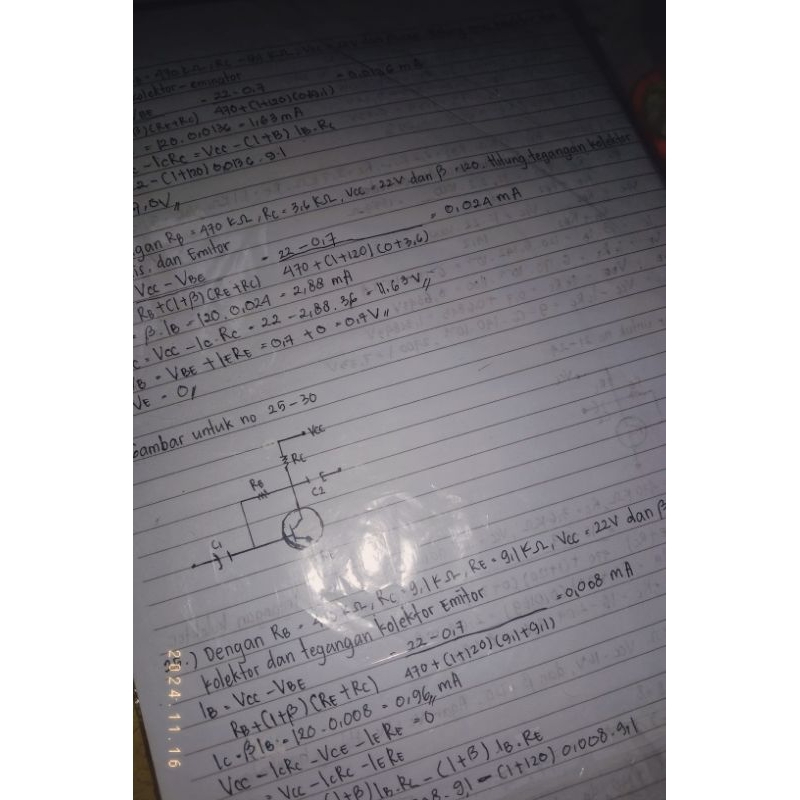 470 kΩ, Rc
kolektor-emitor
VBE = 22-0,7 = 0,0136 mA
)(RE+Rc) 470+(1+120)(0+9,1)
= 120. 0,0136 = 1,63 mA
- IcRc = Vcc - (1+β) IB.Rc
22 - (1+120) 0,0136. 9.1
7,0V//
gan RB = 470 kΩ, Rc = 3,6 kΩ, Vcc = 22V dan β = 120. Hitung tegangan kolektor
is, dan Emitor
Vcc - VBE = 22-0,7 = 0,024 mA
RB+(1+β)(RE+Rc) 470+(1+120)(0+3,6)
= β.IB = 120. 0,024 = 2,88 mA
= Vcc - Ic.Rc = 22 - 2,88. 36 = 11.63 V//
B = VBE + IERE = 0,7 + 0 = 0,7 V//
VE = 0//
Gambar untuk no 25-30
Vcc
Rc
RB
C2
C1
25.) Dengan RB = kΩ, Rc = 9,1 kΩ, RE = 9,1 kΩ, Vcc = 22V dan β
kolektor dan tegangan kolektor Emitor
IB = Vcc - VBE = 22-0,7 = 0,008 mA
RB+(1+β)(RE+Rc) 470+(1+120)(9,1+9,1)
Ic = βIB = 120. 0,008 = 0,96// mA
Vcc - IcRc - VCE - IERE = 0
= Vcc - IcRc - IERE
(1+β) IB.Rc - (1+β) IB.RE
9,1 - (1+120) 0,008. 9,1
2024.11.16